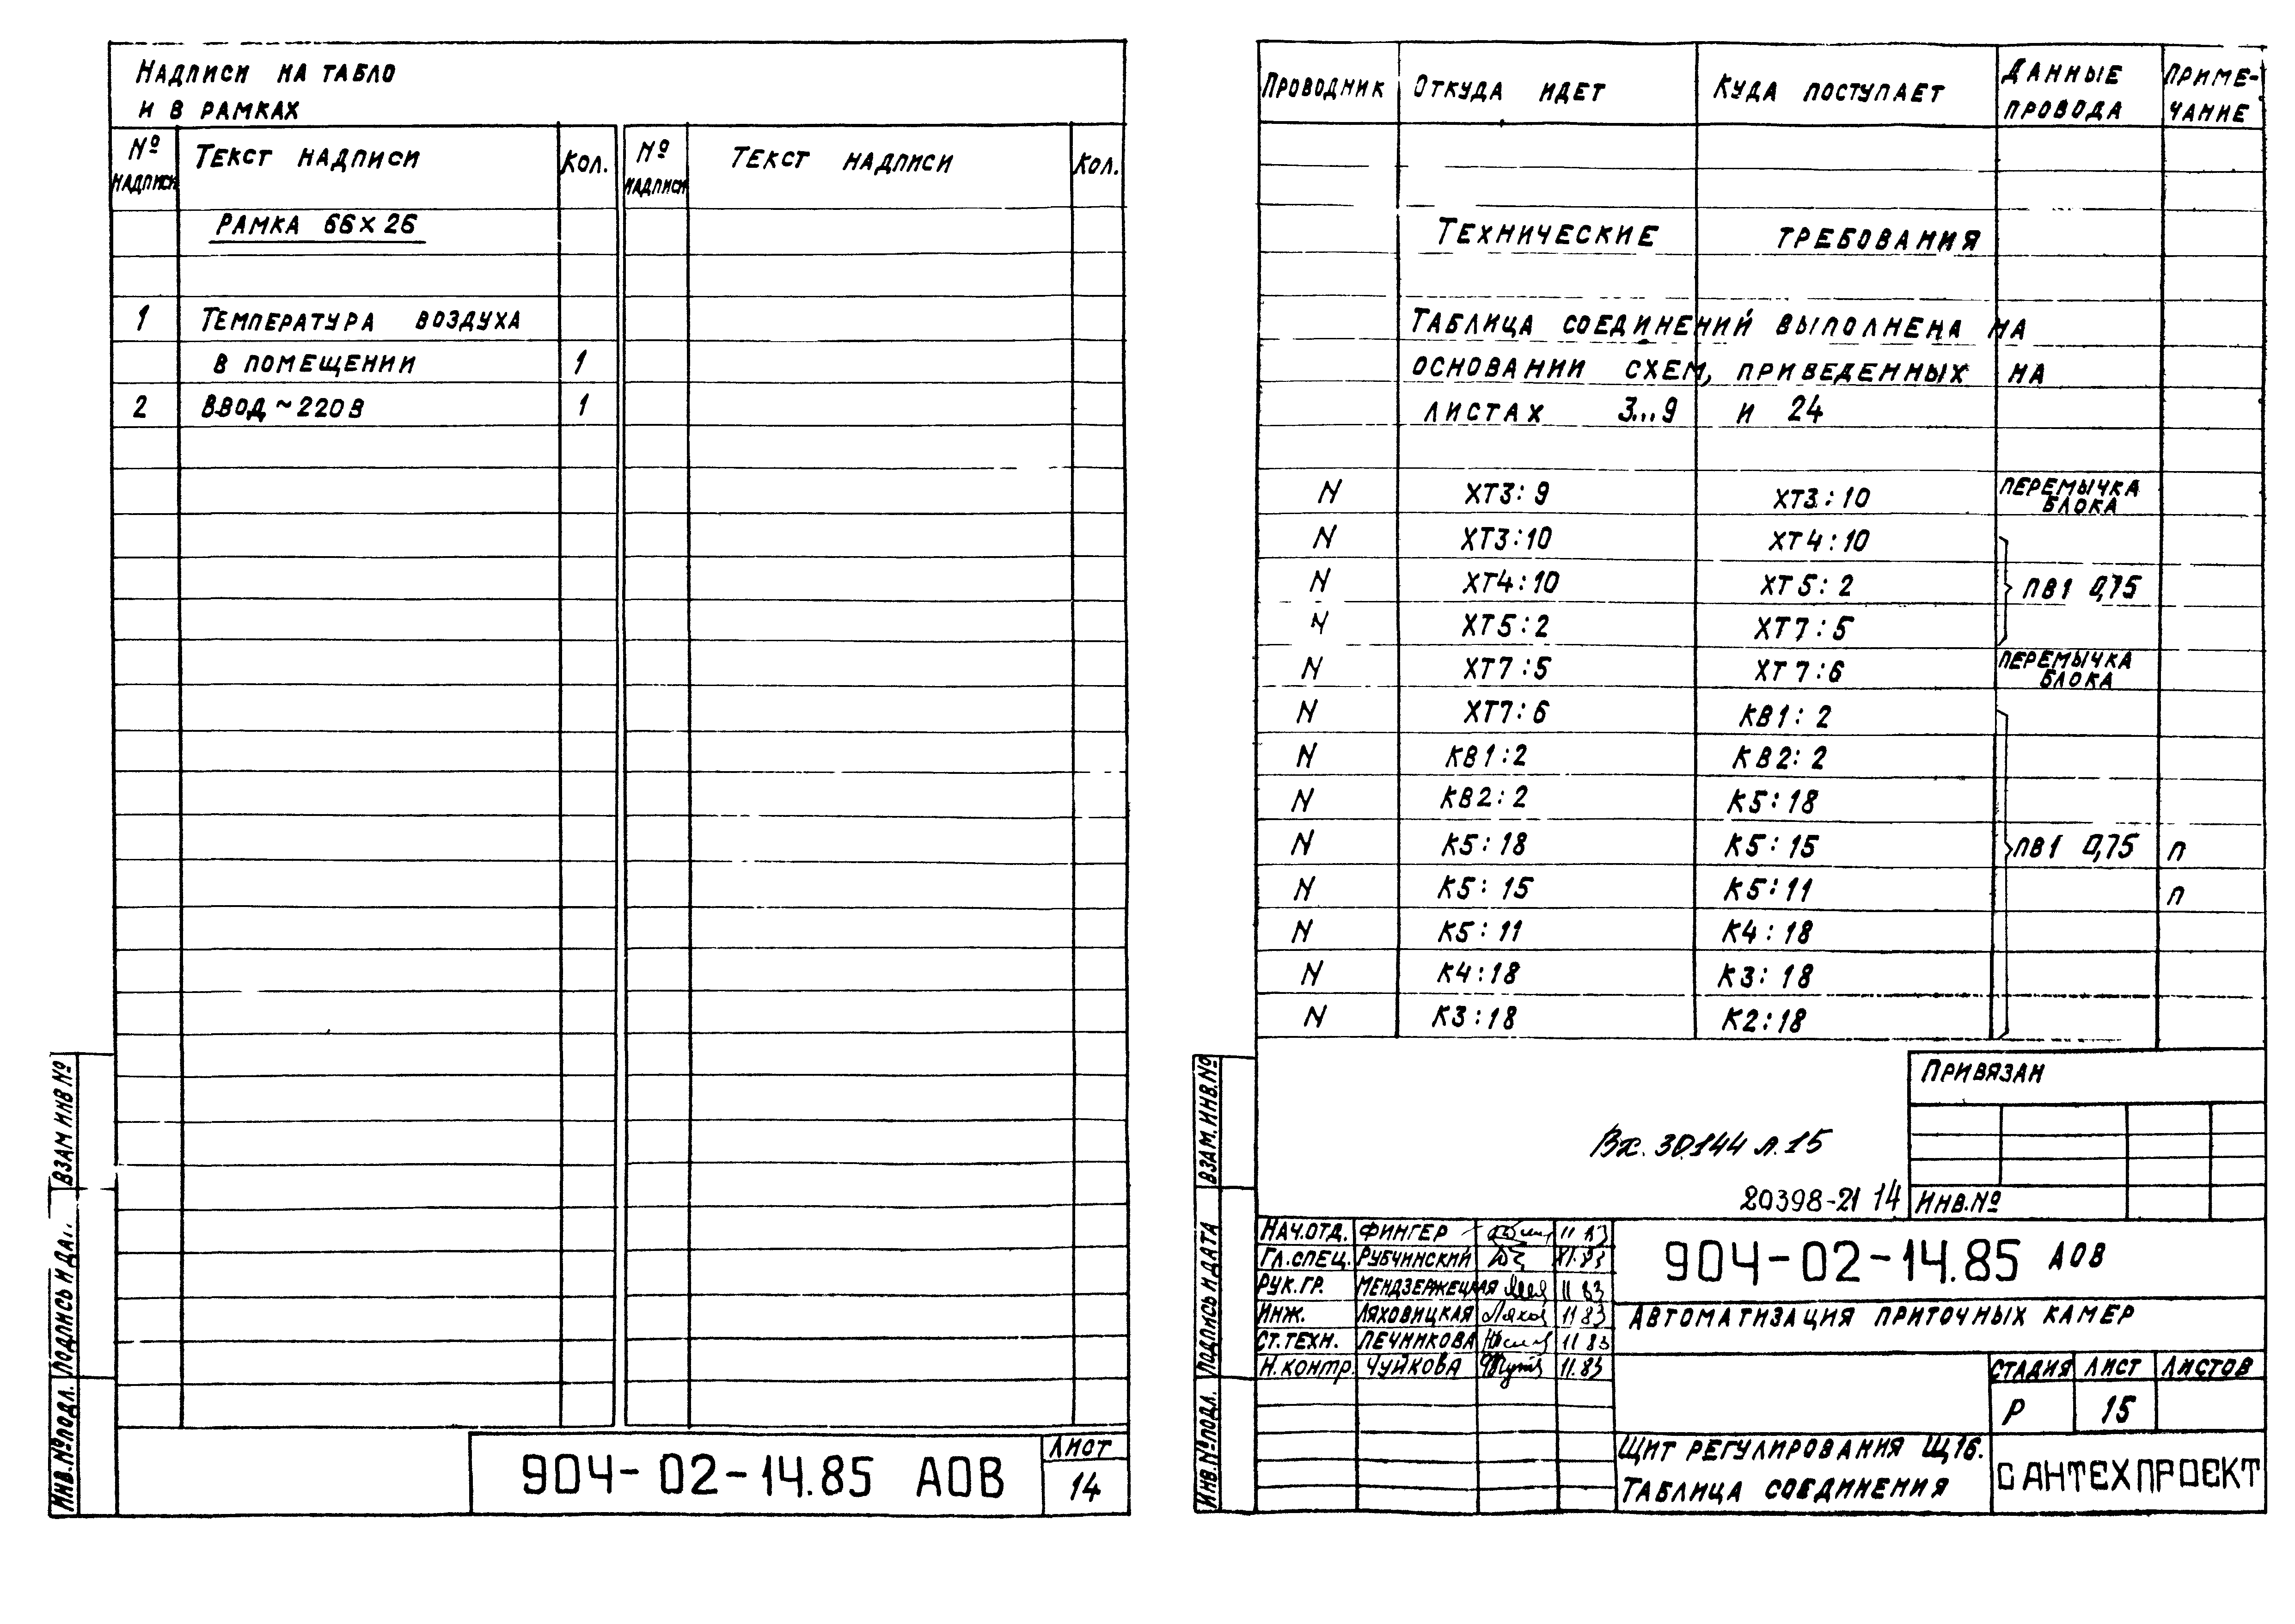 НАДПИСИ НА ТАБЛО
И В РАМКАХ
№ НАДПИСИ ТЕКСТ НАДПИСИ КОЛ. № НАДПИСИ ТЕКСТ НАДПИСИ КОЛ.
РАМКА 66×26
1 ТЕМПЕРАТУРА ВОЗДУХА
В ПОМЕЩЕНИИ 1
2 ВВОД ~ 220 В 1
ВЗАМ ИНВ №
ПОДПИСЬ И ДАТ.
ИНВ. № ПОДЛ.
904-02-14.85 АОВ
ЛИСТ
14
ПРОВОДНИК ОТКУДА ИДЕТ КУДА ПОСТУПАЕТ ДАННЫЕ ПРОВОДА ПРИМЕ-ЧАНИЕ
ТЕХНИЧЕСКИЕ ТРЕБОВАНИЯ
ТАБЛИЦА СОЕДИНЕНИЙ ВЫПОЛНЕНА НА
ОСНОВАНИИ СХЕМ, ПРИВЕДЕННЫХ НА
ЛИСТАХ 3...9 И 24
N ХТ3:9 ХТ3:10 ПЕРЕМЫЧКА БЛОКА
N ХТ3:10 ХТ4:10
N ХТ4:10 ХТ5:2 ПВ1 0,75
N ХТ5:2 ХТ7:5
N ХТ7:5 ХТ7:6 ПЕРЕМЫЧКА БЛОКА
N ХТ7:6 КВ1:2
N КВ1:2 КВ2:2
N КВ2:2 К5:18
N К5:18 К5:15 ПВ1 0,75 П
N К5:15 К5:11 П
N К5:11 К4:18
N К4:18 К3:18
N К3:18 К2:18
ПРИВЯЗАН
Вх. 30144 л.15
20398-21 14
ИНВ.№
ВЗАМ. ИНВ.№
ПОДПИСЬ И ДАТА
ИНВ.№ ПОДЛ.
НАЧ.ОТД. ФИНГЕР 11 83
ГЛ.СПЕЦ. РУБЧИНСКИЙ XI.83
РУК.ГР. МЕНДЗЕРЖЕЦКАЯ 11 83
ИНЖ. ЛЯХОВИЦКАЯ 11 83
СТ.ТЕХН. ПЕЧНИКОВА 11 83
Н.КОНТР. ЧУЙКОВА 11.83
904-02-14.85 АОВ
АВТОМАТИЗАЦИЯ ПРИТОЧНЫХ КАМЕР
СТАДИЯ ЛИСТ ЛИСТОВ
Р 15
ЩИТ РЕГУЛИРОВАНИЯ Щ16.
ТАБЛИЦА СОЕДИНЕНИЯ
САНТЕХПРОЕКТ